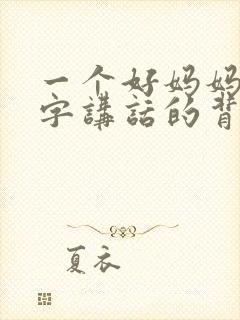 一个好妈妈
字講話的背
夏衣